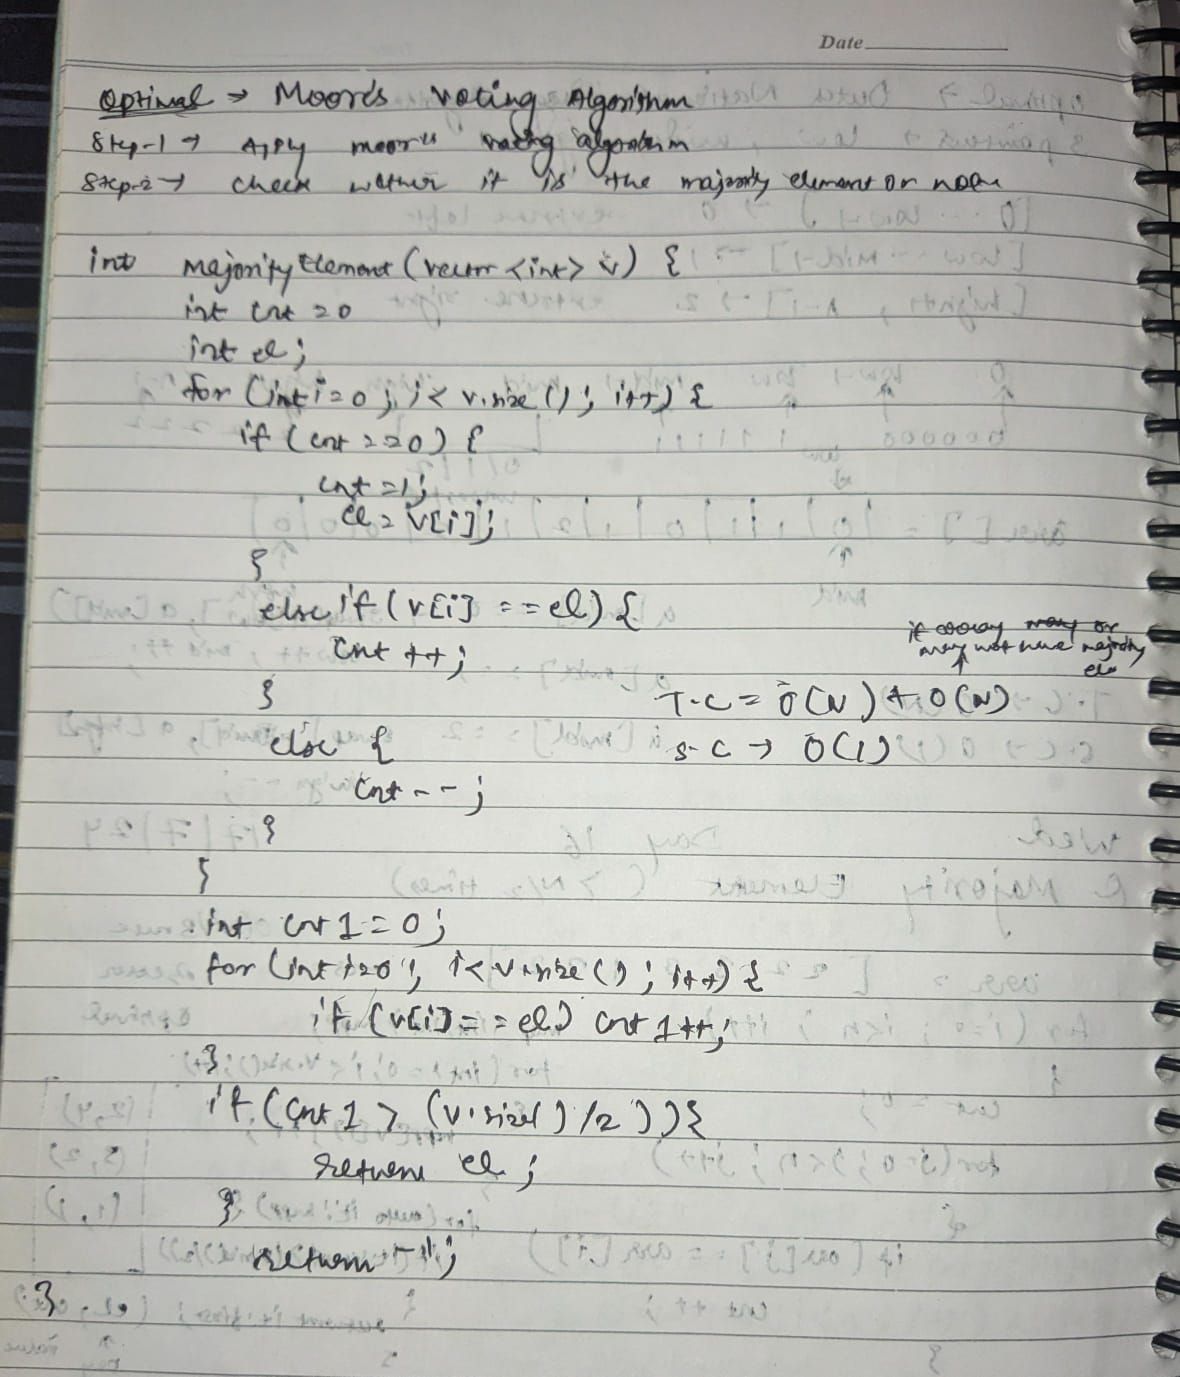 Date
Optimal → Moor's Voting Algorithm
Step-1 → Apply moor's voting algorithm
Step-2 → check wether it is the majority element or not
int majorityElement (vector <int> v) {
int cnt = 0
int el;
for (int i=0; i< v.size(); i++) {
if (cnt ==0) {
cnt =1;
el = v[i];
}
else if (v[i] ==el) {
cnt ++;
}
if array may or
may not have majority
ele
T.C = O(N) + O(N)
else {
S.C → O(1)
cnt--;
}
}
int cnt1=0;
for (int i=0; i<v.size(); i++) {
if (v[i]==el) cnt1++;
}
if (cnt1 > (v.size()/2)){
return el;
}
return -1;
}